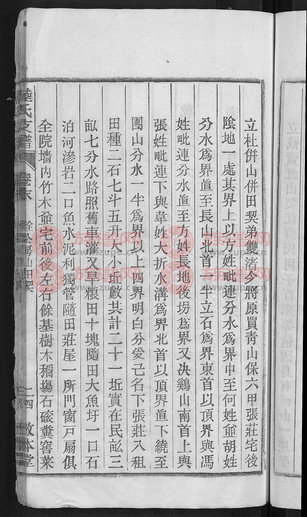 立杜併山併田契弟雙淦今將原買青山保六甲張莊宅後
陰地一處其界上以方姓毗連分水爲界中至何姓竝胡姓
分水爲界直至長山北首一半立石爲界東首以頂界與馮
姓毗連分水直至方姓長地後塝爲界又決鷄山南首上與
張姓毗連下與韋姓大折水溝爲界北首以頂界直下繞至
團山分水一半爲界以上四界明白分受己名下張莊入租
田種二石七斗五升大小坵數共計二十一坵實在民畝三
畝七分水路照舊車灌又旱糧田十塊隨田大魚圩一口石
泊河滲岩二口魚水泥利獨管隨田莊屋一所門窗戸扇俱
全院墻內竹木竝宅前後左右餘基樹木稻場石磙糞窖菜
支譜
卷末
敦本堂